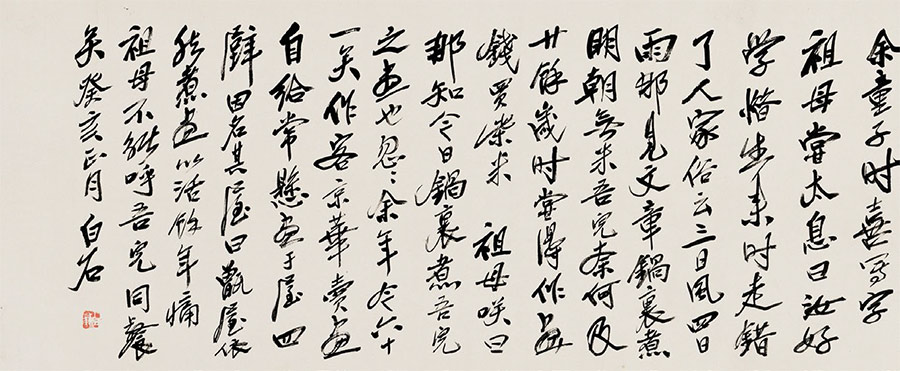 余童子时喜写字
祖母嘗太息曰汝好
学惜生来时走錯
了人家俗云三日風四日
雨那見文章鍋裏煮
明朝無米吾兒奈何及
廿餘歲时嘗得作画
錢買柴米 祖母咲曰
那知今日鍋裏煮吾兒
之画也忽〻余年今六十
一矣作客京華賣画
自給常懸画于屋四
壁因名其屋曰甑屋依
然煮画以活餘年痛
祖母不能呼吾兒同餐
矣癸亥正月 白石